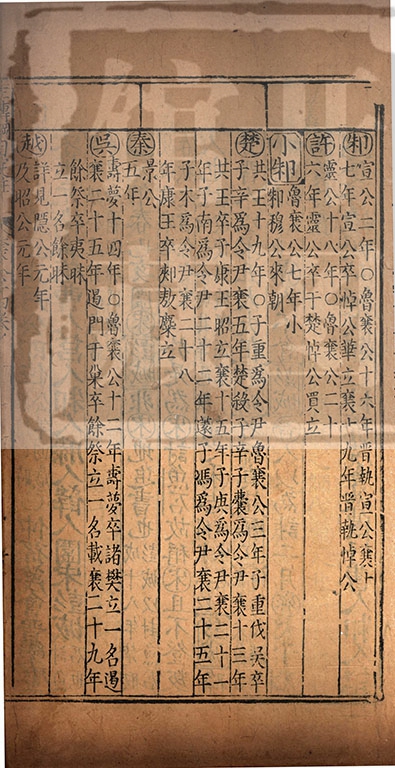 邾宣公二年○魯襄公十六年晉執宣公襄十
七年宣公卒悼公華立襄十九年晉執悼公
許靈公十八年○魯襄公二十
六年靈公卒于楚悼公買立
小邾魯襄公七年小
邾穆公來朝
楚共王十九年○子重爲令尹魯襄公三年子重伐吳卒
子辛爲令尹襄五年楚殺子辛子囊爲令尹襄十三年
共王卒子康王昭立襄十五年子庚爲令尹襄二十一
年子南爲令尹二十二年薳子馮爲令尹襄二十五年
子木爲令尹襄二十八
年康王卒郟敖麋立
秦景公
五年
吳壽夢十四年○魯襄公十二年壽夢卒諸樊立一名遏
襄二十五年遏門于巢卒餘祭立一名戴襄二十九年
餘祭卒夷昧
立一名餘昧
越詳見隱公元年
及昭公元年